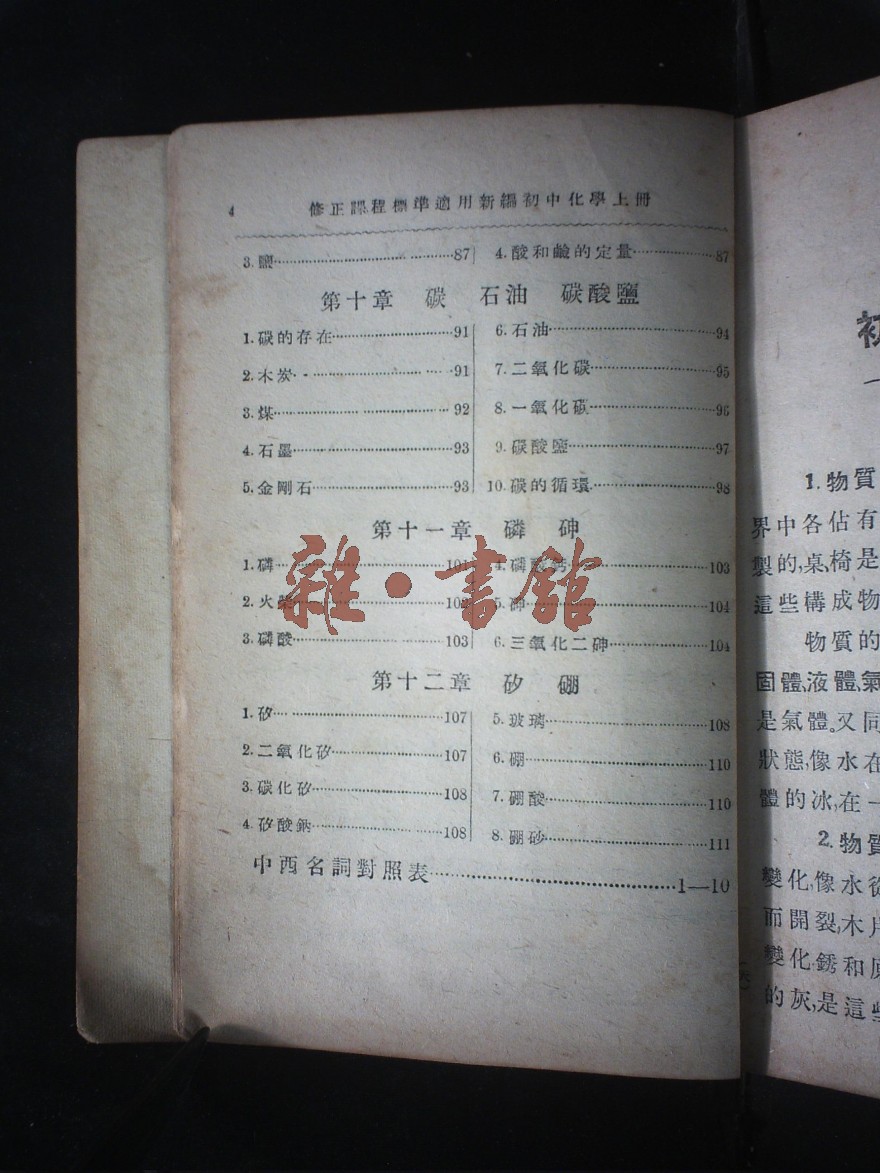 4 修正課程標準適用新編初中化學上冊
3. 鹽 87
4. 酸和鹼的定量 87
第十章 碳 石油 碳酸鹽
1. 碳的存在 91
2. 木炭 91
3. 煤 92
4. 石墨 93
5. 金剛石 93
6. 石油 94
7. 二氧化碳 95
8. 一氧化碳 96
9. 碳酸鹽 97
10. 碳的循環 98
第十一章 磷 砷
1. 磷 101
2. 火柴 102
3. 磷酸 103
4. 磷酸鈣 103
5. 砷 104
6. 三氧化二砷 104
第十二章 矽 硼
1. 矽 107
2. 二氧化矽 107
3. 碳化矽 108
4. 矽酸鈉 108
5. 玻璃 108
6. 硼 110
7. 硼酸 110
8. 硼砂 111
中西名詞對照表 1—10
雜·書館
初
一
1. 物質
界中各佔有
製的,桌椅是
這些構成物
物質的
固體,液體,氣
是氣體。又同
狀態,像水在
體的冰,在一
2. 物質
變化,像水從
而開裂,木片
變化,銹和
的灰,是這些